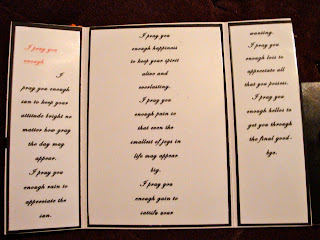 I pray you
enough
I
pray you enough
sun to keep your
attitude bright no
matter how gray
the day may
appear.
I pray you
enough rain to
appreciate the
sun.
I pray you
enough happiness
to keep your spirit
alive and
everlasting.
I pray you
enough pain so
that even the
smallest of joys in
life may appear
big.
I pray you
enough gain to
satisfy your
wanting.
I pray you
enough loss to
appreciate all
that you possess.
I pray you
enough hellos to
get you through
the final good-
bye.